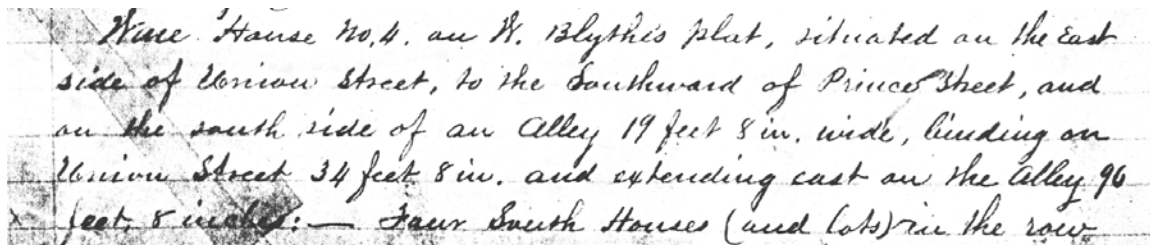 Wise House No. 4. on W. Blythe's plat, situated on the East
side of Union Street, to the Southward of Prince Street, and
on the south side of an Alley 19 feet 8 in. wide, binding on
Union Street 34 feet 8 in. and extending east on the Alley 96
feet, 8 inches: — Four South Houses (and lots) in the row